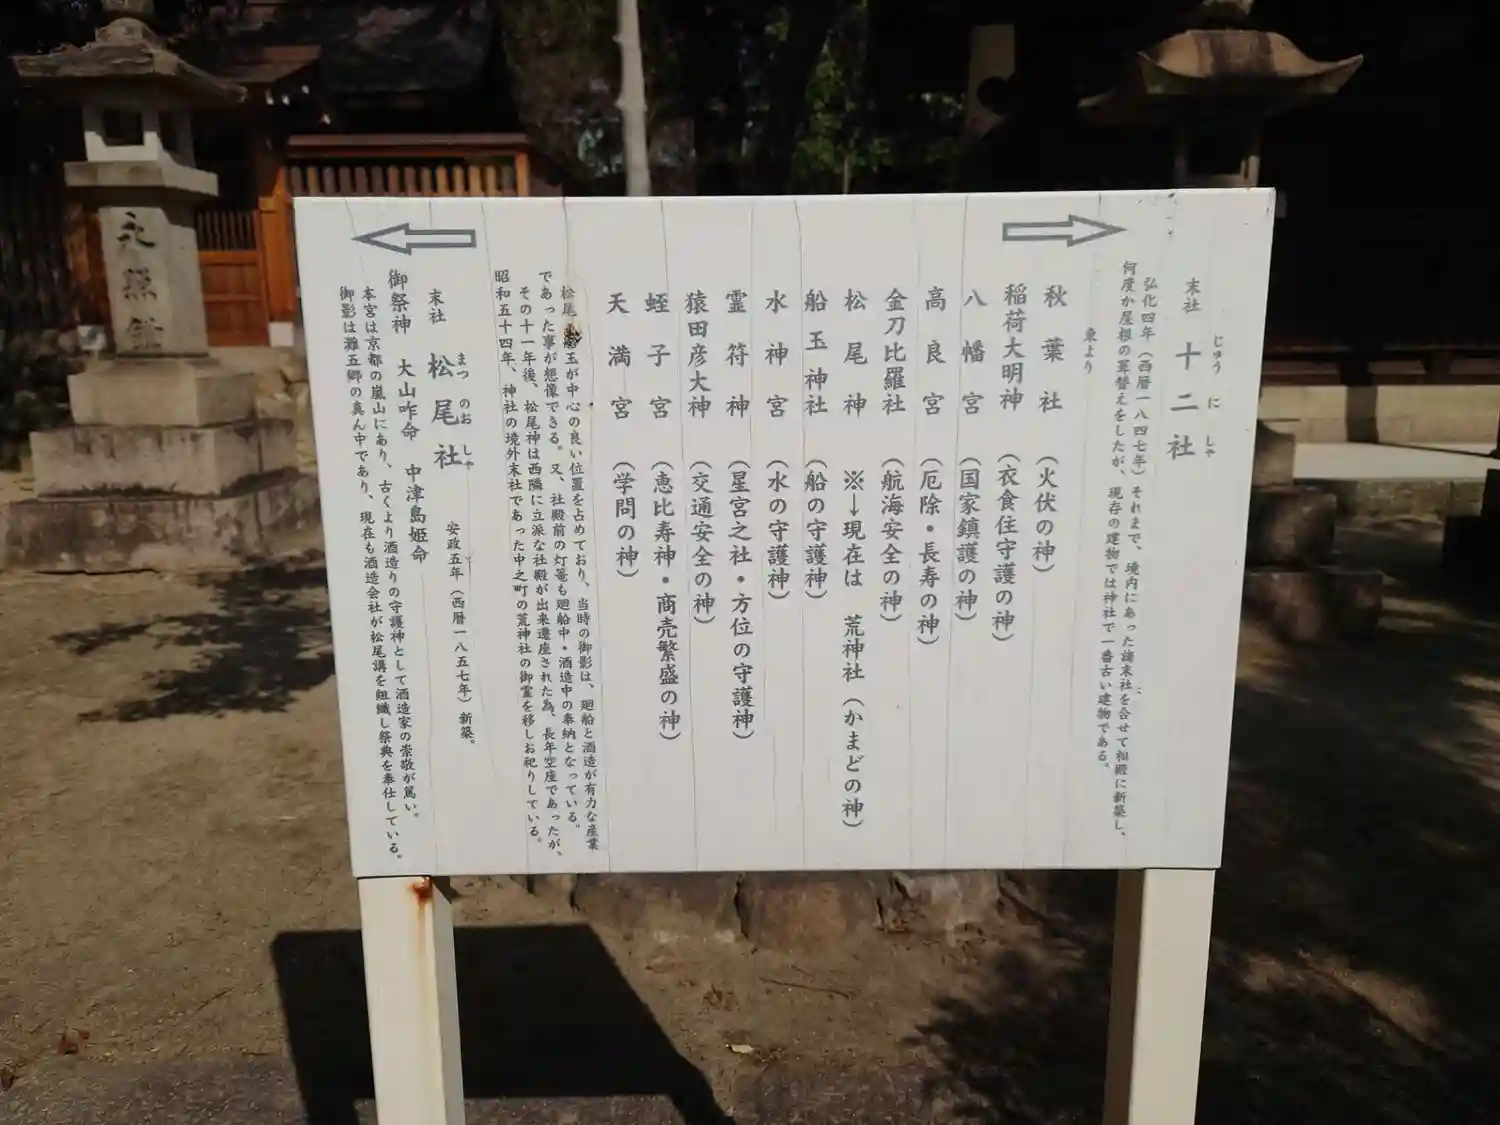 末社 十二社
じゅう に しゃ
弘化四年(西暦一八四七年)それまで、境内にあった諸末社を合せて相殿に新築し、
何度か屋根の葺替えをしたが、現存の建物では神社で一番古い建物である。
東より
秋葉社 (火伏の神)
稲荷大明神 (衣食住守護の神)
八幡宮 (国家鎮護の神)
高良宮 (厄除・長寿の神)
金刀比羅社 (航海安全の神)
松尾神 ※→現在は 荒神社(かまどの神)
船玉神社 (船の守護神)
水神宮 (水の守護神)
霊符神 (星宮之社・方位の守護神)
猿田彦大神 (交通安全の神)
蛭子宮 (恵比寿神・商売繁盛の神)
天満宮 (学問の神)
松尾 船玉が中心の良い位置を占めており、当時の御影は、廻船と酒造が有力な産業
であった事が想像できる。又、社殿前の灯篭も廻船中・酒造中の奉納となっている。
その十一年後、松尾神は西隣に立派な社殿が出来遷座された為、長年空座であったが、
昭和五十四年、神社の境外末社であった中之町の荒神社の御霊を移しお祀りしている。
末社 松尾社 安政五年(西暦一八五七年)新築。
まつ のお しゃ
御祭神 大山咋命 中津島姫命
本宮は京都の嵐山にあり、古くより酒造りの守護神として酒造家の崇敬が篤い。
御影は灘五郷の真ん中であり、現在も酒造会社が松尾講を組織し祭典を奉仕している。
永照鑑